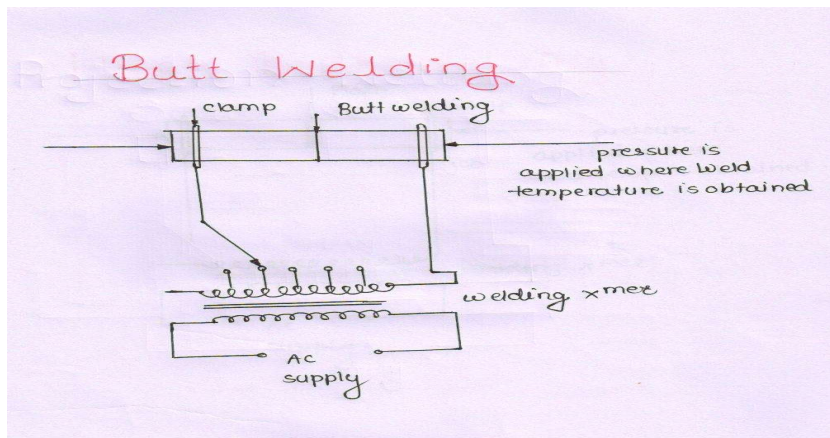 Butt Welding
clamp
Butt welding
pressure is
applied where weld
temperature is obtained
welding xmer
AC
supply